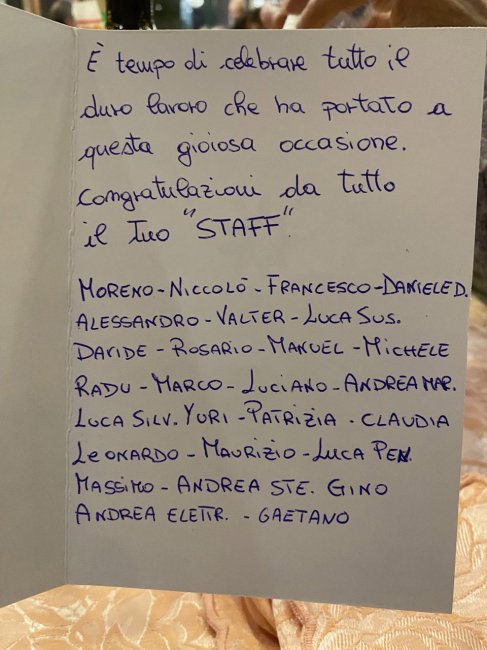 È tempo di celebrare tutto il
duro lavoro che ha portato a
questa gioiosa occasione.
Congratulazioni da tutto
il Tuo "STAFF".
MORENO - NICCOLÒ - FRANCESCO - DANIELE D.
ALESSANDRO - VALTER - LUCA SUS.
DAVIDE - ROSARIO - MANUEL - MICHELE
RADU - MARCO - LUCIANO - ANDREA MAR.
LUCA SILV. YURI - PATRIZIA - CLAUDIA
LEONARDO - MAURIZIO - LUCA PEN.
MASSIMO - ANDREA STE. GINO
ANDREA ELETTR. - GAETANO